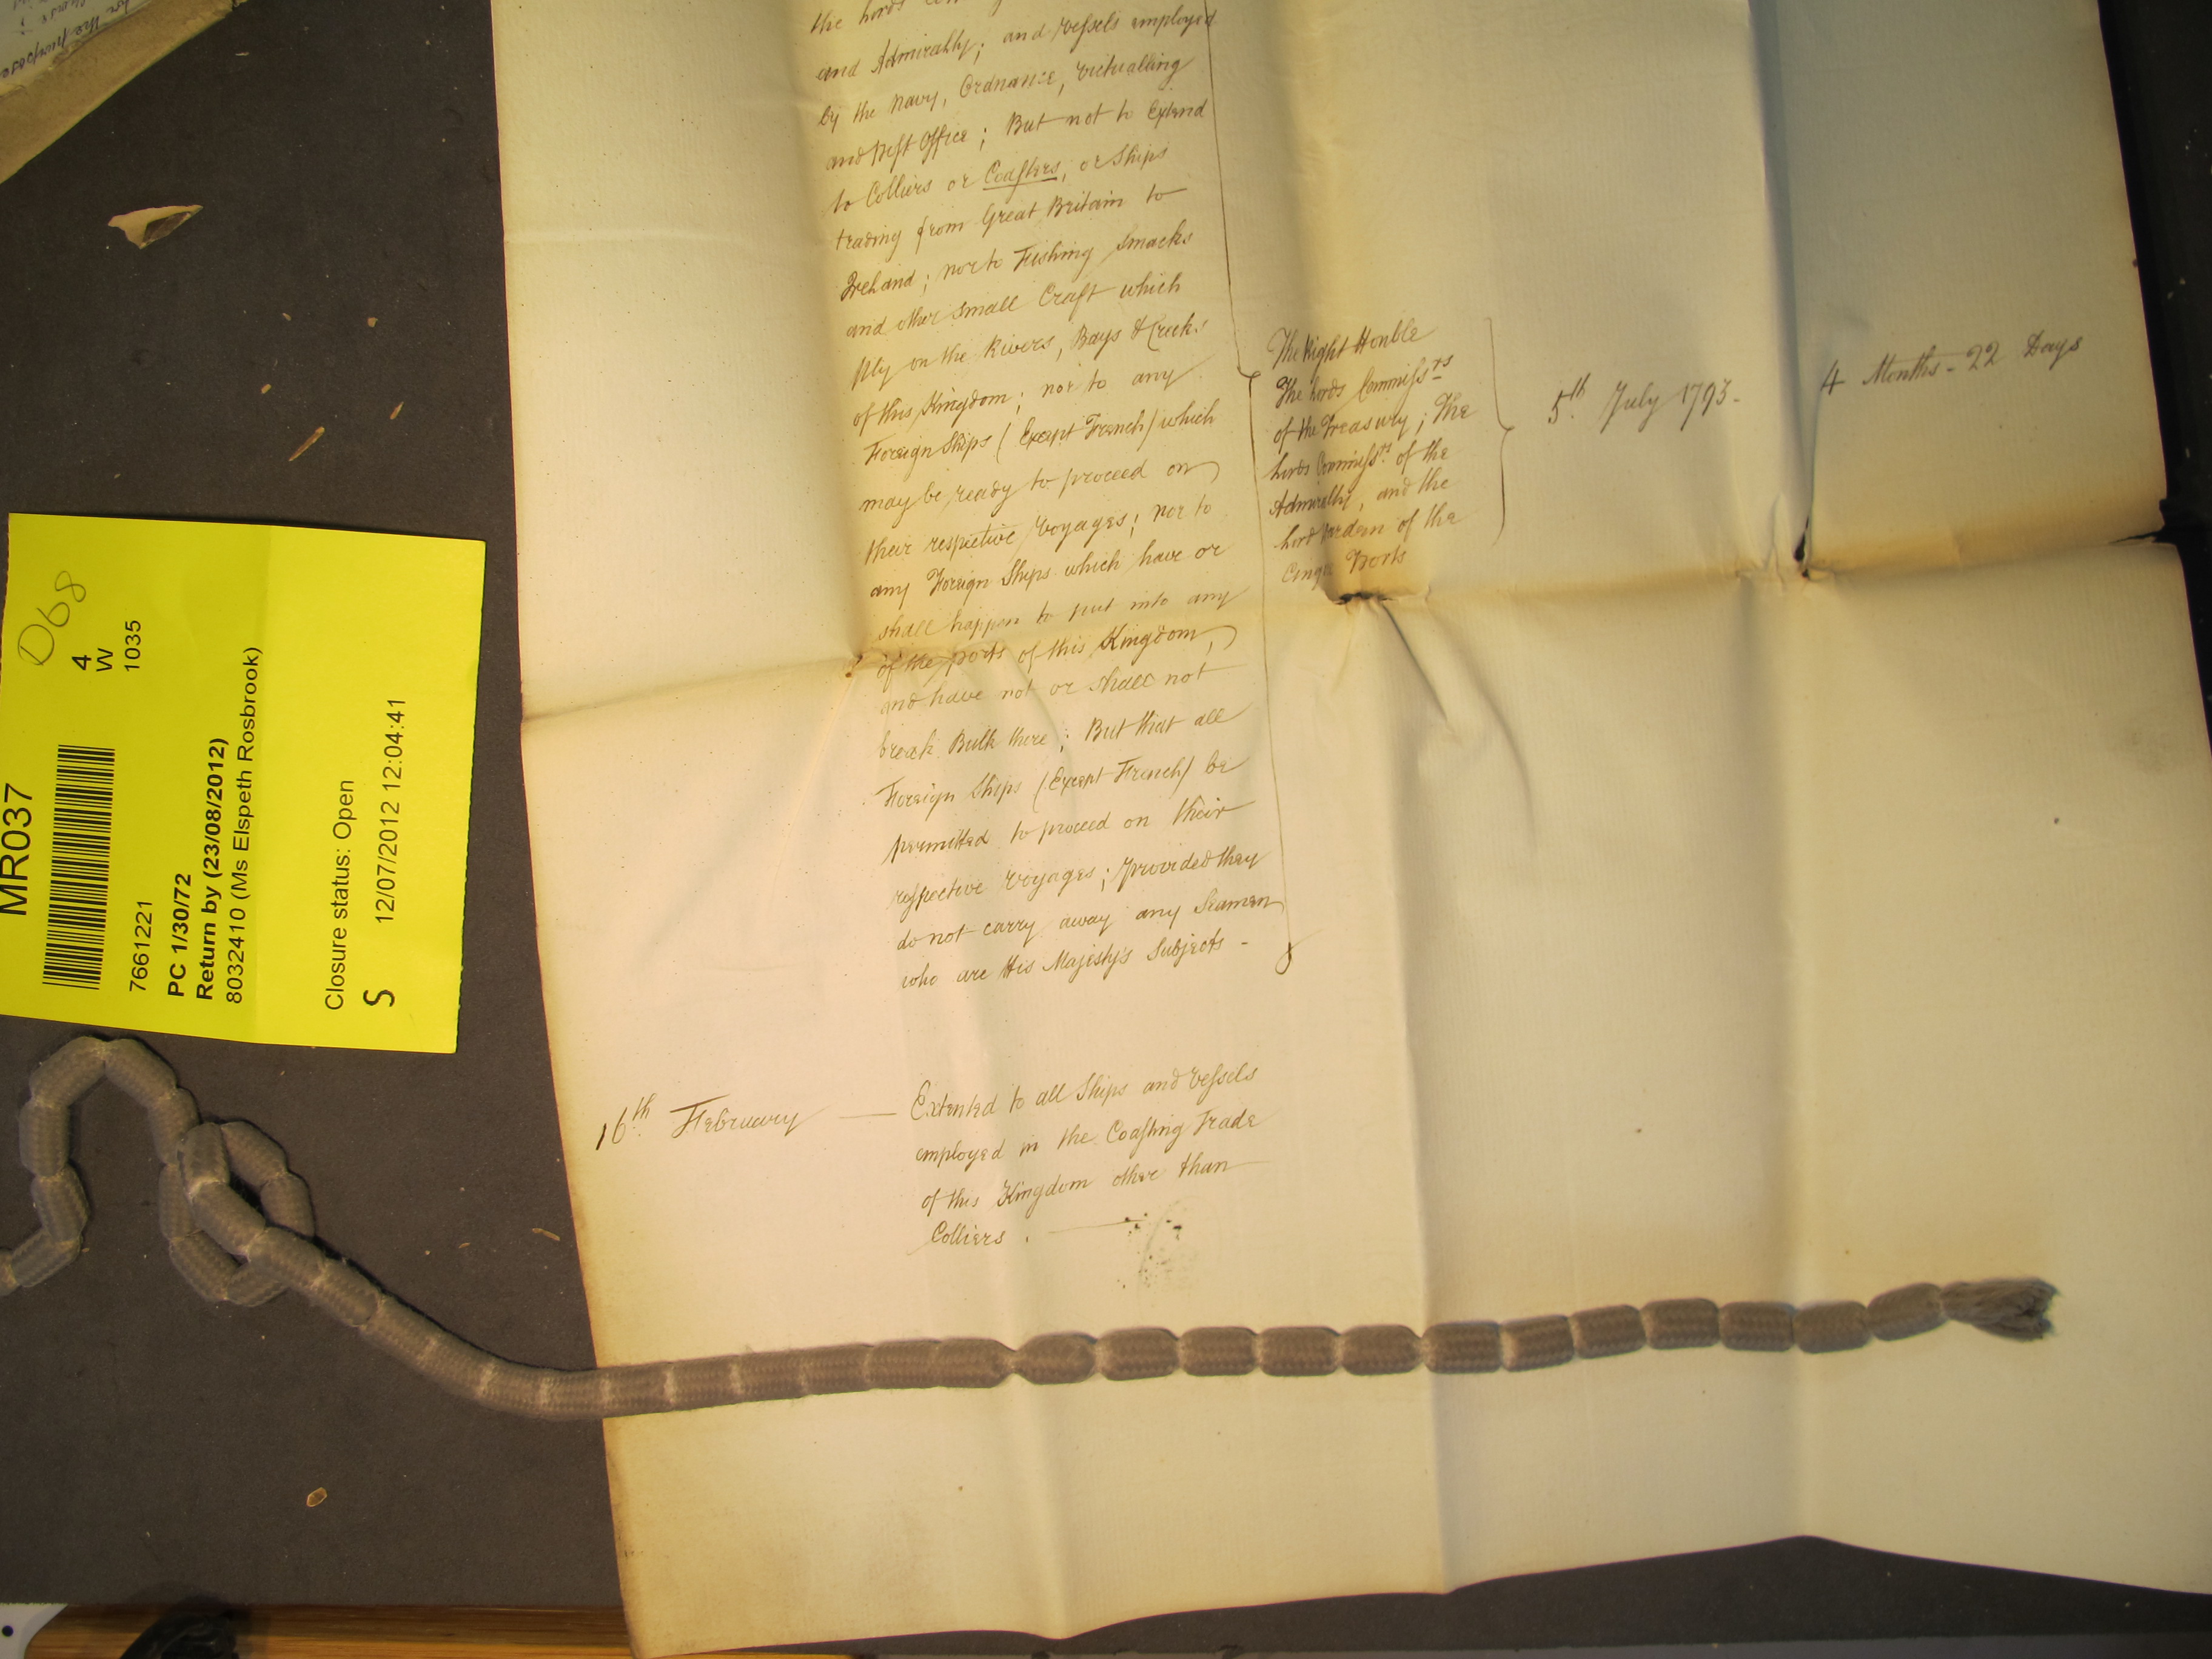 the Lords
and Admiralty; and Vessels employed
by the Navy, Ordnance, Victualling
and Post Office; But not to Extend
to Colliers or Coasters, or Ships
trading from Great Britain to
Ireland; nor to Fishing Smacks
and other small Craft which
ply on the Rivers, Bays & Creeks
of this Kingdom; nor to any
Foreign Ships (Except French) which
may be ready to proceed on
their respective Voyages; nor to
any Foreign Ships which have or
shall happen to put into any
of the ports of this Kingdom,
and have not or shall not
break Bulk there; But that all
Foreign Ships (Except French) be
permitted to proceed on their
respective Voyages; provided they
do not carry away any Seamen
who are His Majesty's Subjects -
The Right Honble
The Lords Commissrs
of the Treasury; The
Lords Commissrs of the
Admiralty, and the
Lord Warden of the
Cinque Ports
5th July 1793.
4 Months - 22 Days
16th February — Extented to all Ships and Vessels
employed in the Coasting Trade
of this Kingdom other than
Colliers. —
MR037
D68
4
W
1035
7661221
PC 1/30/72
Return by (23/08/2012)
8032410 (Ms Elspeth Rosbrook)
Closure status: Open
S 12/07/2012 12:04:41